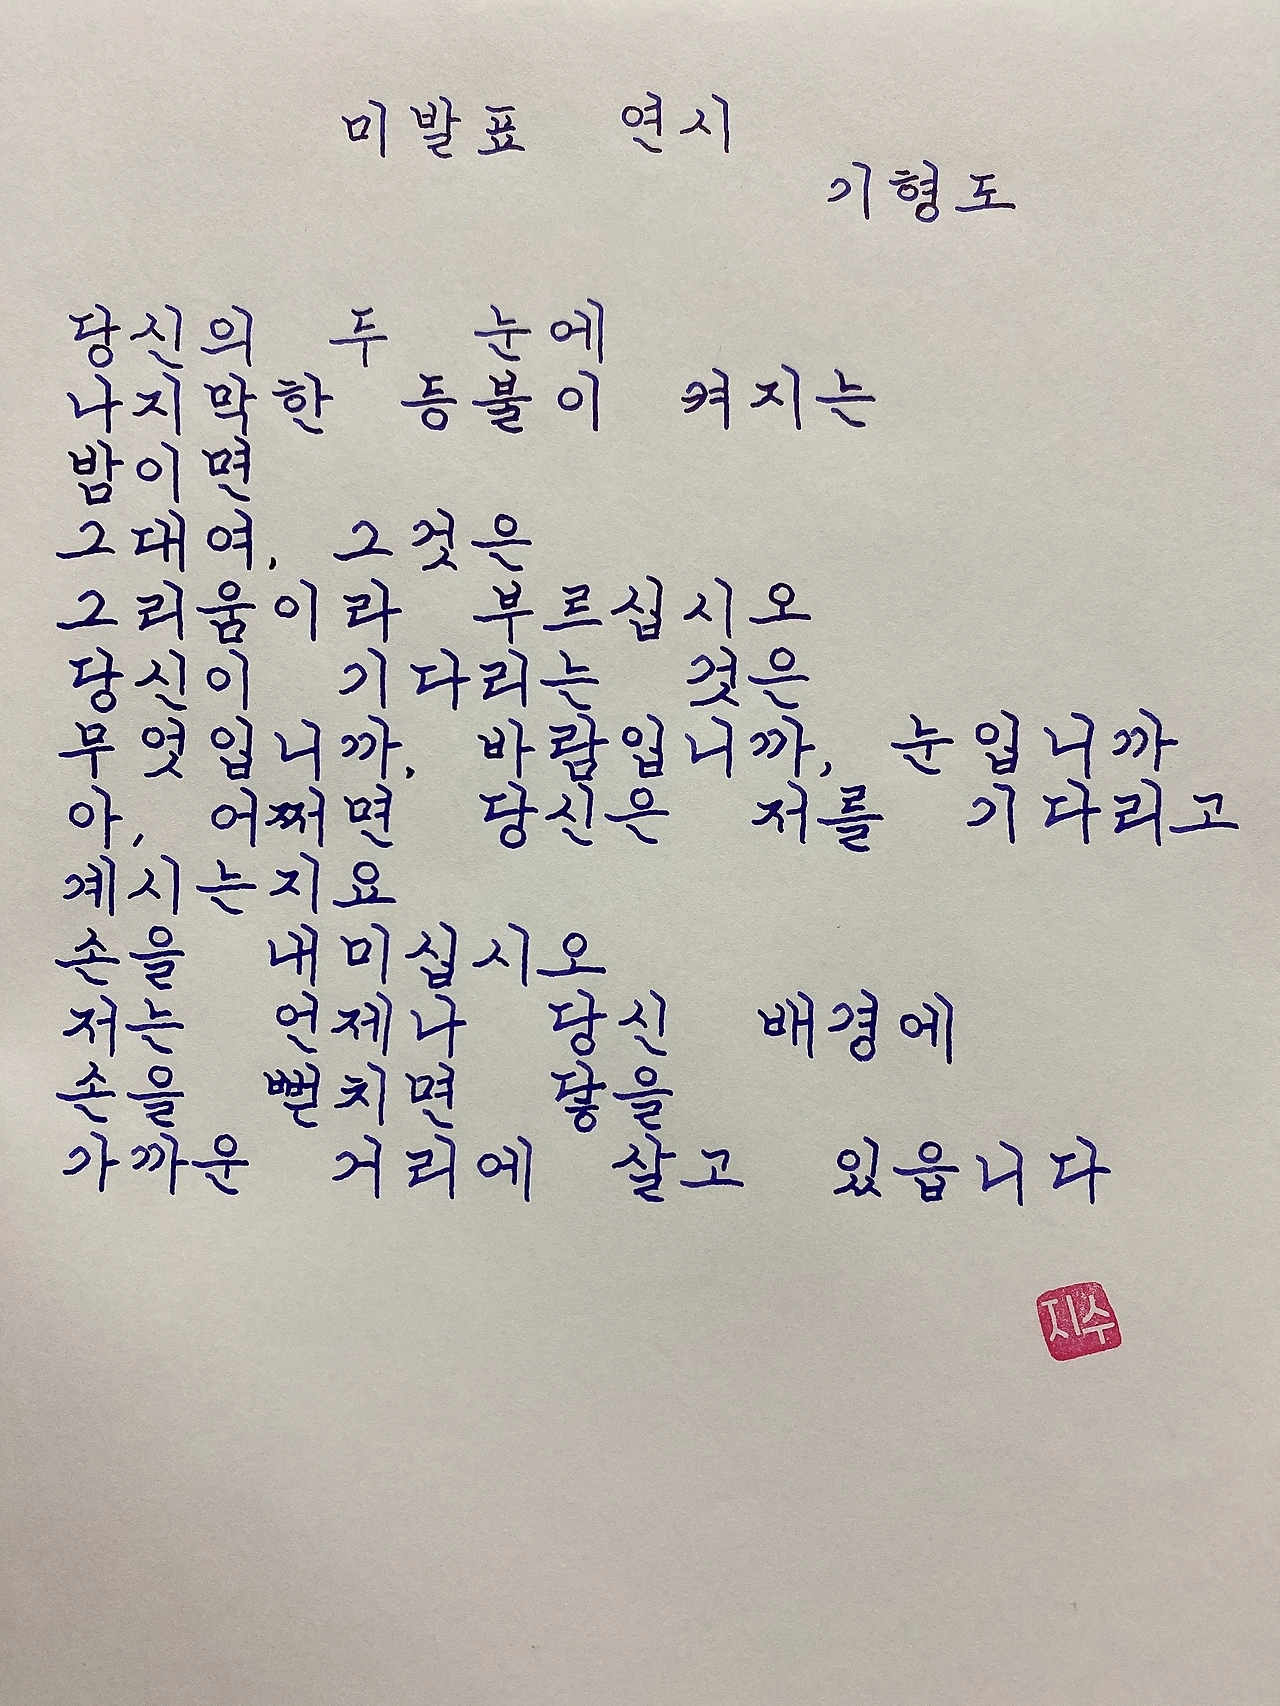 미발표 연시
기형도
당신의 두 눈에
나지막한 등불이 켜지는
밤이면
그대여, 그것은
그리움이라 부르십시오
당신이 기다리는 것은
무엇입니까, 바람입니까, 눈입니까
아, 어쩌면 당신은 저를 기다리고
계시는지요
손을 내미십시오
저는 언제나 당신 배경에
손을 뻗치면 닿을
가까운 거리에 살고 있읍니다
지수